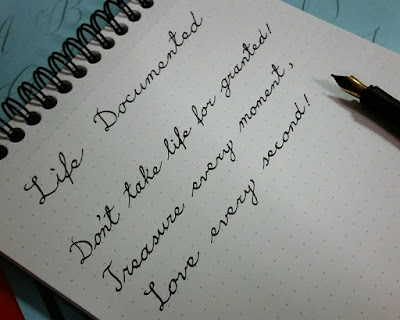 Life Documented
Don't take life for granted!
Treasure every moment,
Love every second!